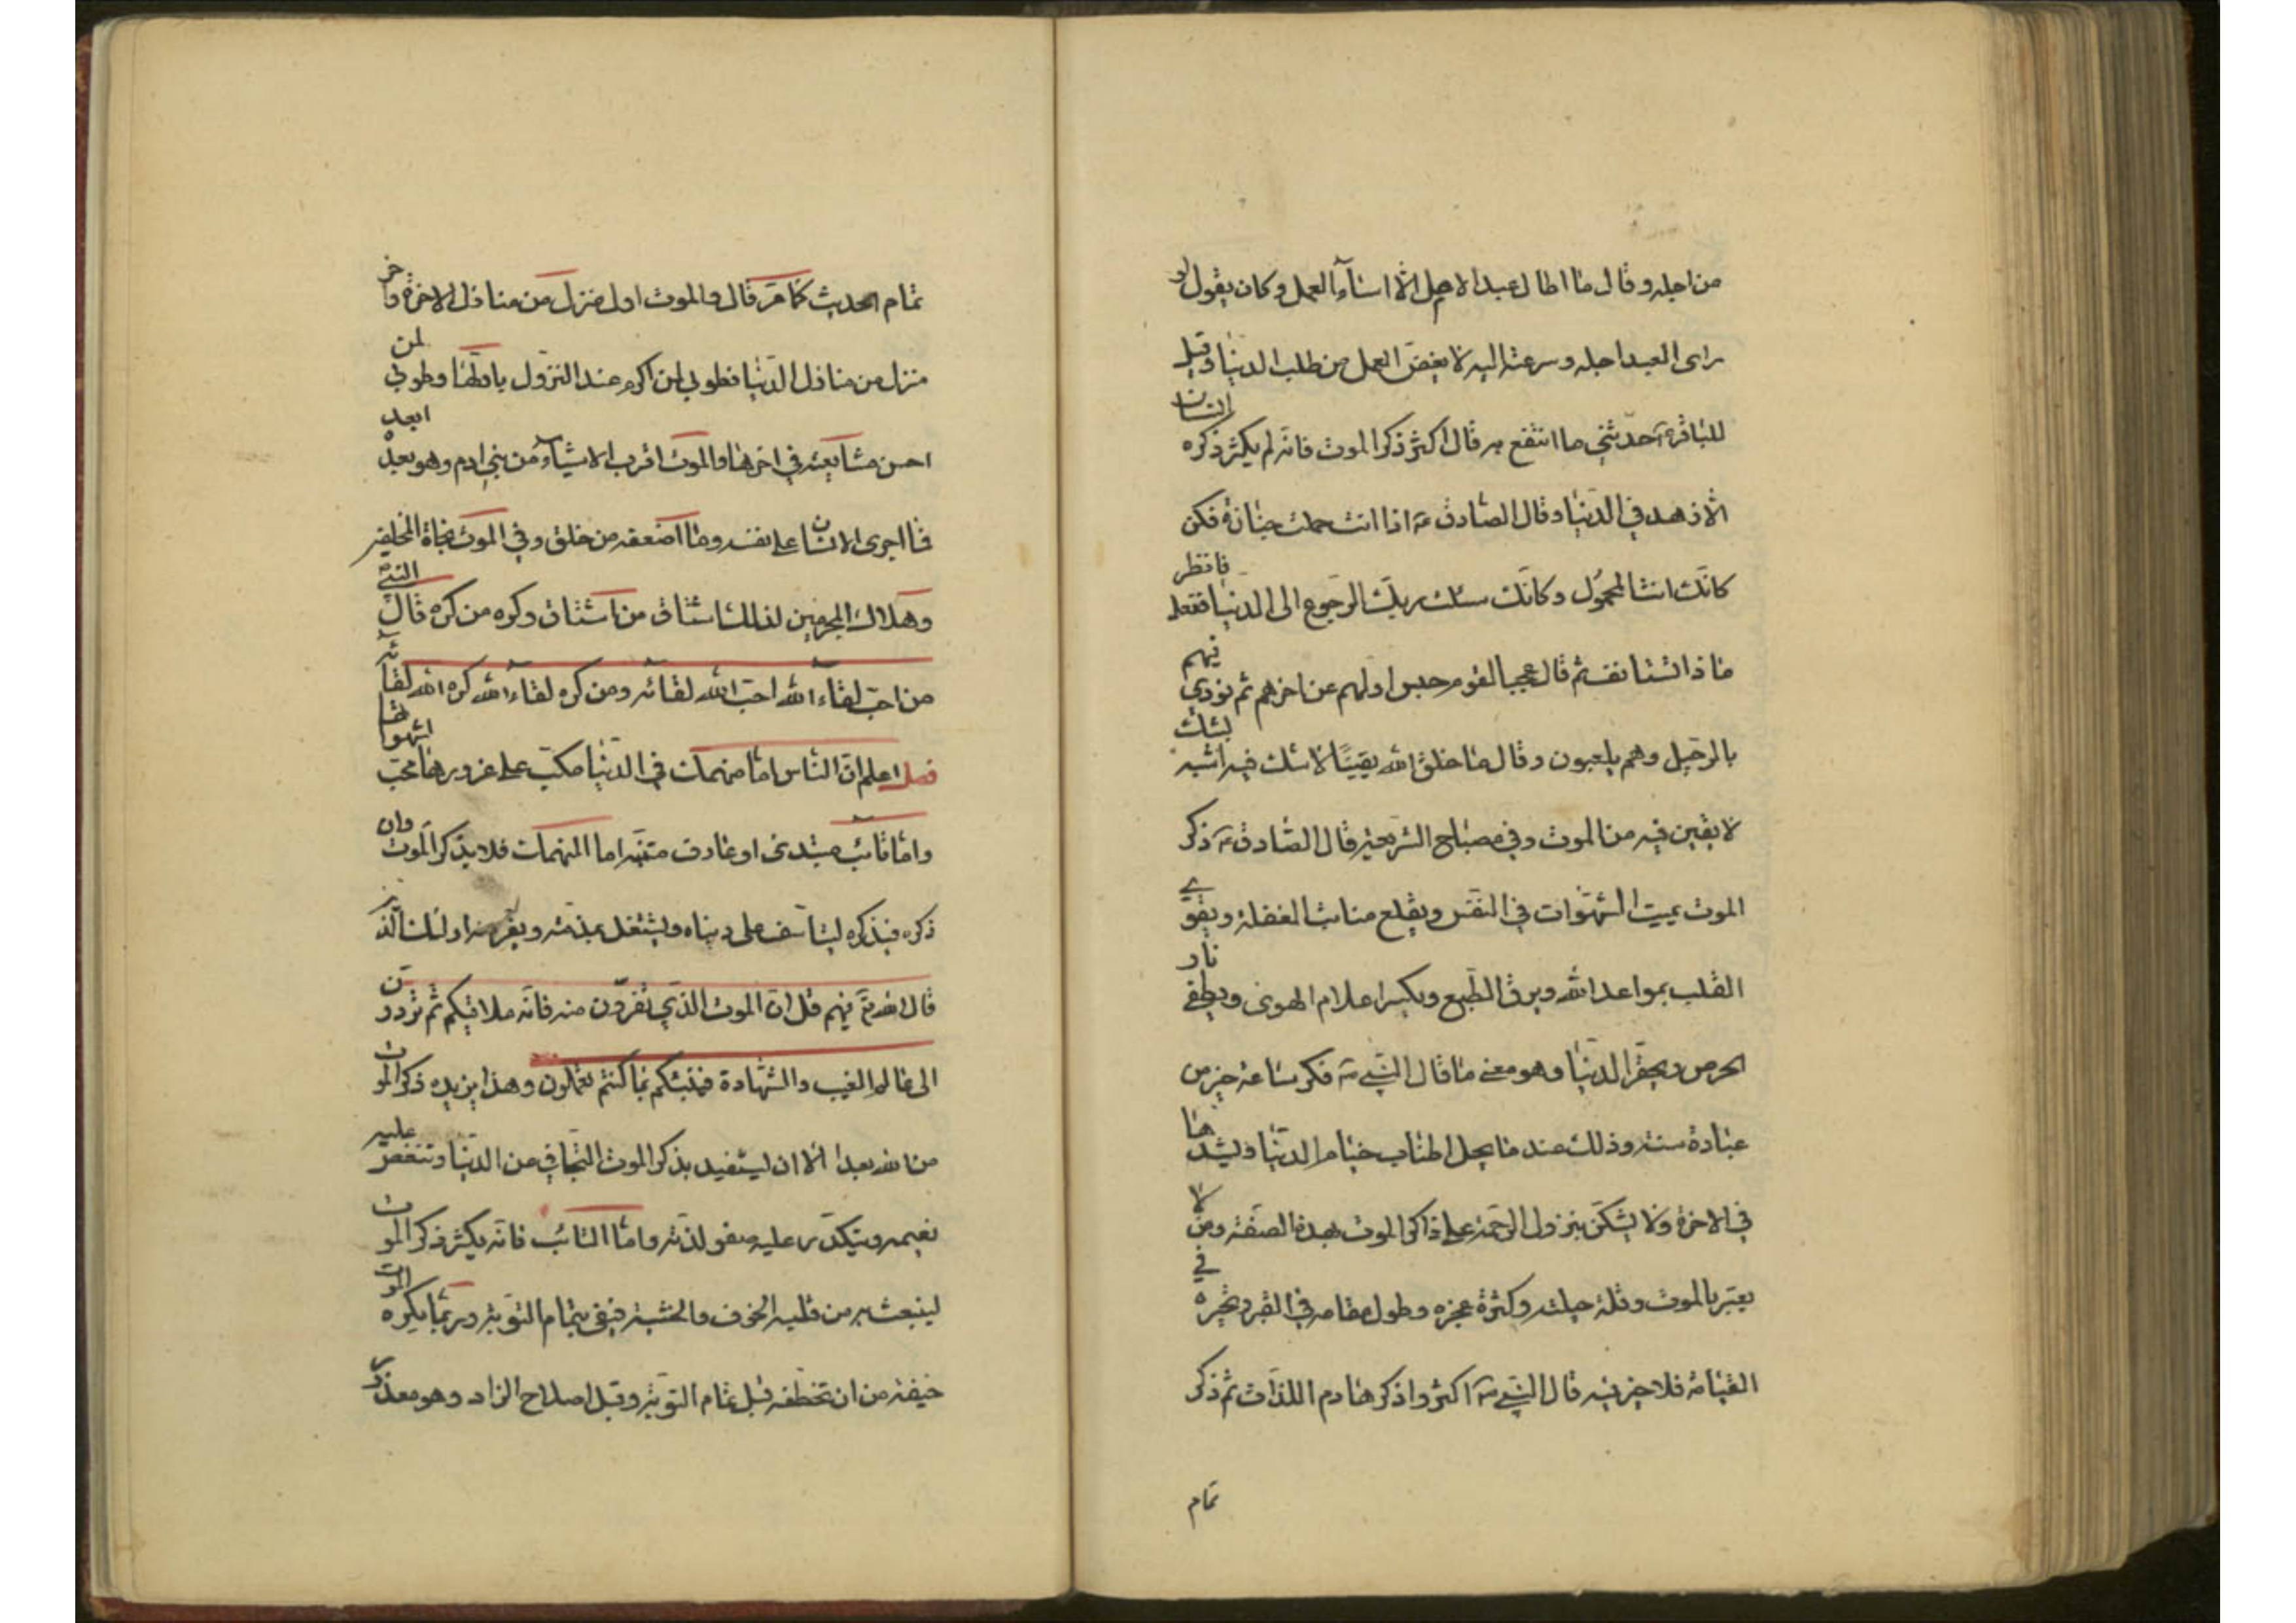 من اجله وقال ما اطال عبد الامل الّا اساء العمل وكان يقول لو
راى العبد اجله وسرعته اليه لابغض العمل من طلب الدنيا وقيل
للباقرء حدّثني ما انتفع به قال اكثر ذكر الموت فانه لم يكثر ذكره انسان
الّا زهد في الدنيا وقال الصادق ع اذا انت حملت جنازة فكن
كانّك انت المحمول وكانّك سئلت ربك الرجوع الى الدنيا ففعل فانظر
ما ذا تستانف ثم قال عجبا لقوم حبس اولهم عن اخرهم ثم نودي فيهم
بالرحيل وهم يلعبون وقال ما خلق الله يقينًا لا شك فيه اشبه بشك
لا يقين فيه من الموت وفي مصباح الشريعة قال الصادق ع ذكر
الموت يميت الشهوات في النفس ويقلع منابت الغفلة ويقوي
القلب بمواعد الله ويرق الطبع ويكسر اعلام الهوى ويطفي نار
الحرص ويحقر الدنيا وهو معنى ما قال النبي ص فكر ساعة خير من
عبادة سنة وذلك عند ما يحل اطناب خيام الدنيا ويشدها
في الاخرة ولا يشكّ بنزول الرحمة على ذاكر الموت بهذه الصفة ومن لا
يعتبر بالموت وقلة حيلته وكثرة عجزه وطول مقامه في القبر وتحيره في
القيامة فلا خير فيه قال النبي ص اكثروا ذكر هادم اللذات ثم ذكر
تمام
تمام الحديث كما مرّ قال والموت اول منزل من منازل الاخرة واخر
منزل من منازل الدنيا فطوبى لمن اكرم عند النزول باولها وطوبى لمن
احسن مشايعته في اخرها والموت اقرب الاشياء من بني ادم وهو يعده ابعد
فما اجرى الانسان على نفسه وما اضعفه من خلق وفي الموت نجاة المخلصين
وهلاك المجرمين لذلك اشتاق من اشتاق وكره من كره قال النبي ص
من احب لقاء الله احب الله لقائه ومن كره لقاء الله كره الله لقائه
فصل اعلم ان الناس اما منهمك في الدنيا مكبّ على غرورها محب لشهواتها
واما تائب مبتدى او عارف متنبه اما المنهمك فلا يذكر الموت وان
ذكره فيذكره ليتاسف على دنياه ويشتغل بمذمته ويفر منه اولئك الذين
قال الله تع فيهم قل ان الموت الذي تفرون منه فانه ملاقيكم ثم تردون
الى عالم الغيب والشهادة فينبئكم بما كنتم تعملون وهذا يزيده ذكر الموت
من الله بعدا الا ان يستفيد بذكر الموت التجافي من الدنيا وتنغص عليه
نعيمه ويتكدر عليه صفو لذته واما التائب فانه يكثر ذكر الموت
لينبعث به من قلبه الخوف والخشية فيفي بتمام التوبة وربما يكره الموت
خيفة من ان تخطفه قبل تمام التوبة وقبل اصلاح الزاد وهو معذور